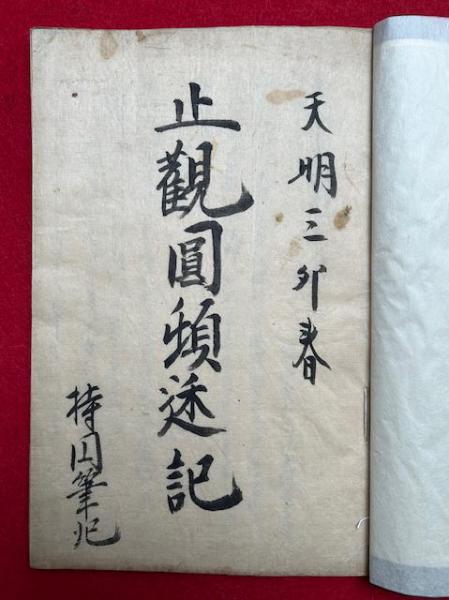 天明三卯春
止觀圓頓述記
持円筆記